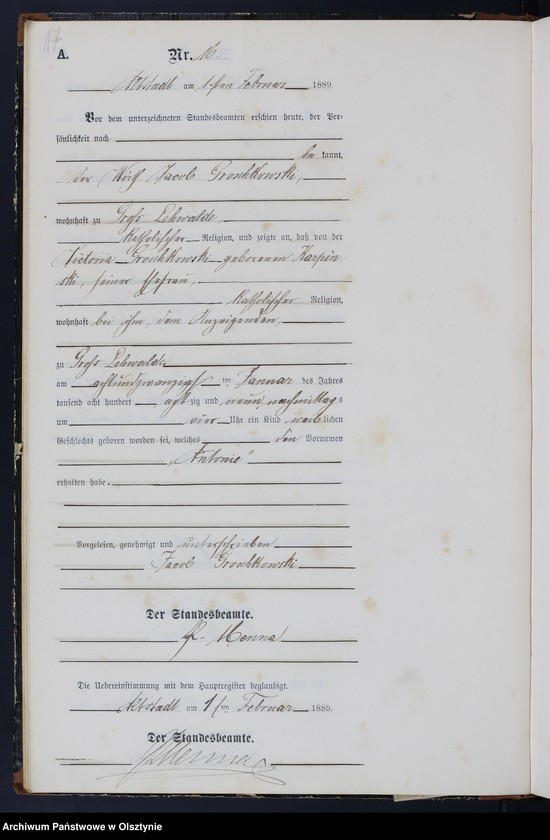 17
A. Nr. 16
Altstadt am 1ten Februar 1889.
Vor dem unterzeichneten Standesbeamten erschien heute, der Per-
sönlichkeit nach
be kannt,
der Wirth Jacob Groschkowski,
wohnhaft zu Groß Lehwalde,
katholischer Religion, und zeigte an, daß von der
Victoria Groschkowski geborenen Karpin
ski, seiner Ehefrau,
katholischer Religion,
wohnhaft bei ihm, dem Anzeigenden,
zu Groß Lehwalde
am achtundzwanzigst ten Januar des Jahres
tausend acht hundert acht zig und neun, nachmittags
um vier Uhr ein Kind weib lichen
Geschlechts geboren worden sei, welches den Vornamen
„Antonie“
erhalten habe.
Vorgelesen, genehmigt und unterschrieben
Jacob Groschkowski
Der Standesbeamte.
Menna
Die Uebereinstimmung mit dem Hauptregister beglaubigt.
Altstadt am 1 ten Februar 1889.
Der Standesbeamte.
Menna
Archiwum Państwowe w Olsztynie